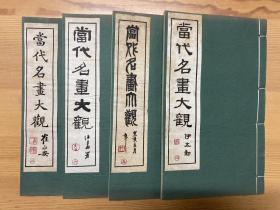 當代名畫大觀
當代名畫大觀
當代名畫大觀
當代名畫大觀